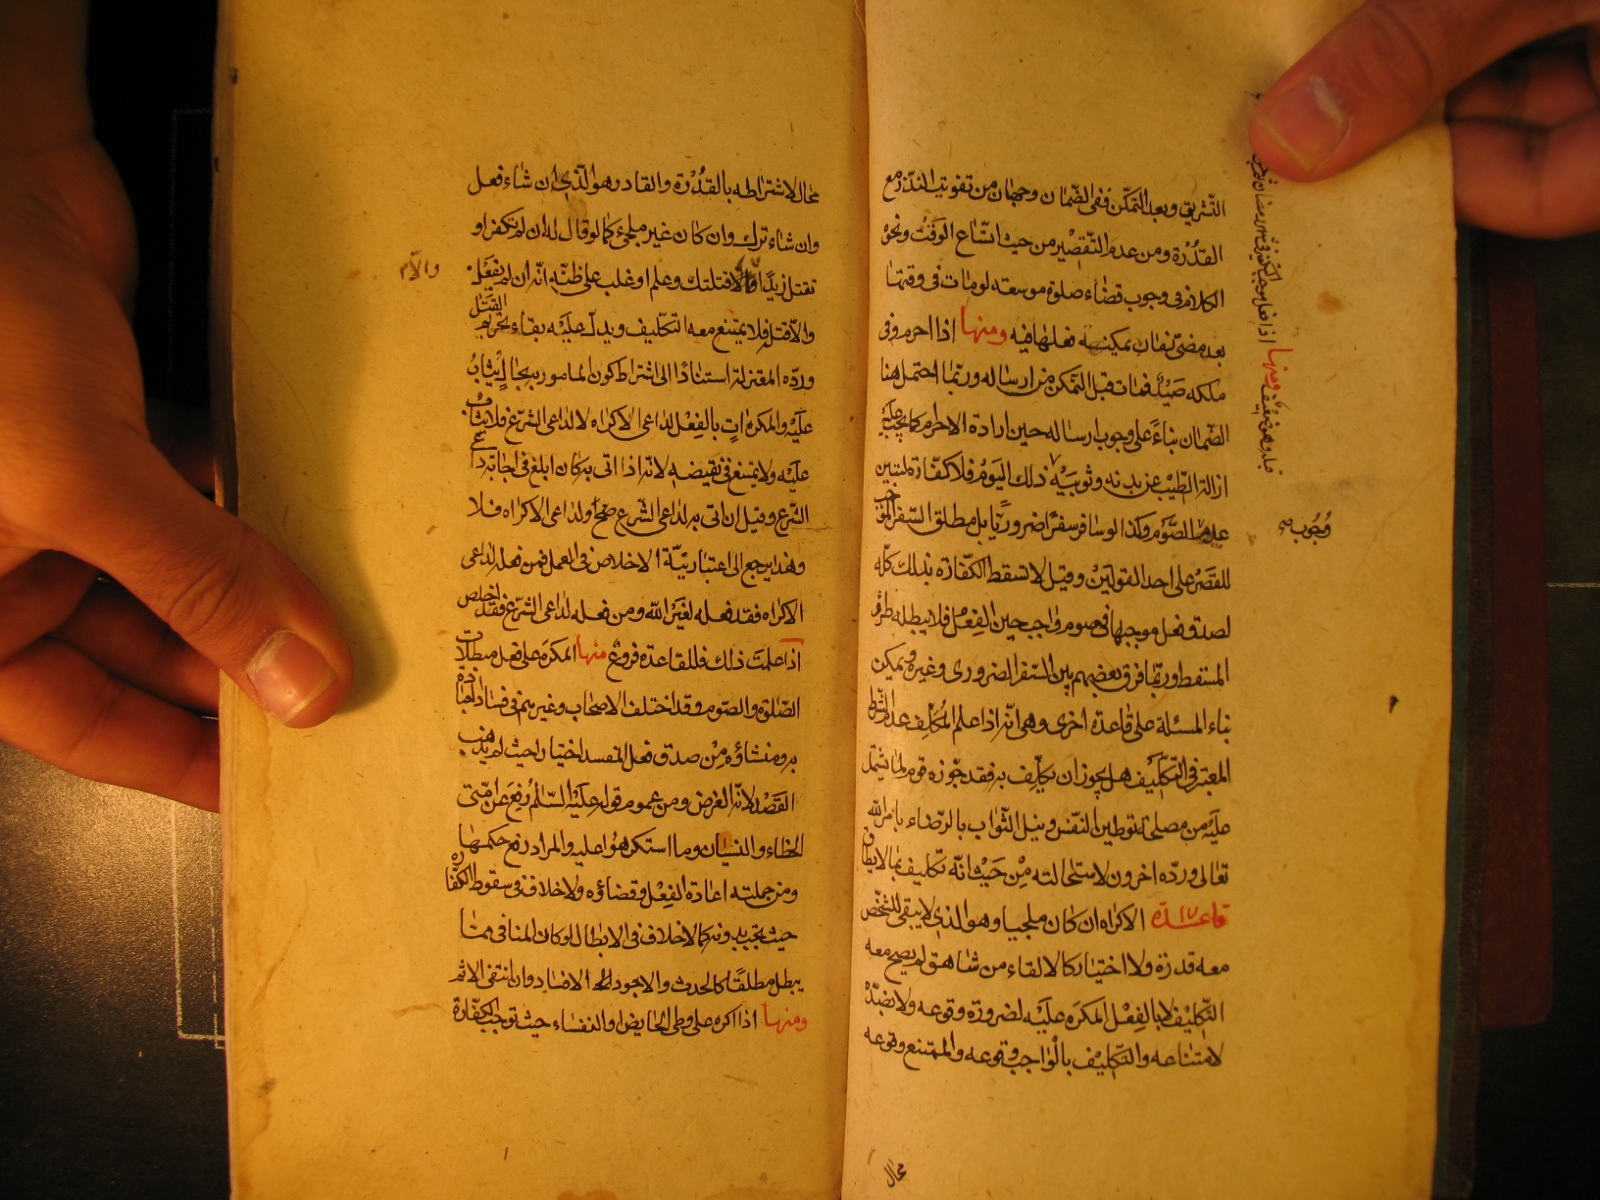 التشريق وبعد التمكن ففى الضمان وجهان من تفويت النذر مع
القدرة ومن عدم التقصير من حيث اتساع الوقت ونحوه
الكلام فى وجوب قضاء صلوة موسعة لو مات فى وقتها
بعد مضى زمان يمكنه فعلها فيه ومنها اذا احرم وفى
ملكه صيد فمات قبل التمكن من ارساله وربما احتمل هنا
الضمان بناءً على وجوب ارساله حين ارادة الاحرام كما يجب عليه
ازالة الطيب عن بدنه وثوبيه ذلك اليوم فلا كفارة لتبين
عدم الصوم وكذا لو سافر سفرًا ضروريًا بل مطلق السفر الموجب
للقصر على احد القولين وقيل لا تسقط الكفارة بذلك كله
لصدق فعل موجبها فى صوم واجب حين الفعل فلا يبطله طرؤ
المسقط وربما فرق بعضهم بين السفر الضرورى وغيره ويمكن
بناء المسئلة على قاعدة اخرى وهى انه اذا علم المكلف عدم الشرط
المعتبر فى التكليف هل يجوز ان يكلف به فقد جوزه قوم لما يشتمل
عليه من مصلحة توطين النفس ونيل الثواب بالرضاء بامر الله
تعالى ورده اخرون لاستحالته من حيث انه تكليف بما لا يطاق
قاعدة ١٧ الاكراه ان كان ملجيا وهو الذى لا يبقى للشخص
معه قدرة ولا اختيار كالالقاء من شاهق لم يصح معه
التكليف لا بالفعل المكره عليه لضرورة وقوعه ولا بضده
لامتناعه والتكليف بالواجب وقوعه والممتنع وقوعه
محال
ومنها اذا فعل موجب الكفارة فى شهر رمضان
قبله وهو ضعيف
وجوب صح
محال لاشتراطه بالقدرة والقادر هو الذى ان شاء فعل
وان شاء ترك وان كان غير ملجئ كما لو قال له ان لم تكفر او
تقتل زيدًا والا قتلتك وعلم او غلب على ظنه انه ان لم يفعل
والا قتله فلا يمتنع معه التكليف ويدل عليه بقاء تحريم القتل
ورده المعتزلة استنادًا الى اشتراط كون المامور به بحال يثاب
عليه والمكره ات بالفعل لداعى الاكراه لا لداعى الشرع فلا يثاب
عليه ولا يمتنع فى نقيضه لانه اذا اتى به كان ابلغ فى اجابة داعى
الشرع وقيل ان اتى به لداعى الشرع صح او لداعى الاكراه فلا
وهذا يرجع الى اعتبار نية الاخلاص فى العمل فمن فعل لداعى
الاكراه فقد فعله لغير الله ومن فعله لداعى الشرع فقد اخلص
اذا علمت ذلك فللقاعدة فروع منها المكره على فعل مبطلات
الصلوة والصوم وقد اختلف الاصحاب وغيرهم فى فساد العبادة
به ومنشاؤه من صدق فعل المفسد اختيارا حيث لم يذهب
القصد لانه الغرض ومن عموم قوله عليه السلام رفع عن امتى
الخطاء والنسيان وما استكرهوا عليه والمراد رفع حكمها
ومن جملته اعادة الفعل وقضاؤه ولا خلاف فى سقوط الكفارة
حيث يجب به وندر كما لا خلاف فى الابطال لو كان المنافى مما
يبطل مطلقًا كالحدث والاجود الافساد وان انتفى الاثم
ومنها اذا اكره على وطى الحايض او النفساء حيث توجب الكفارة
والا م